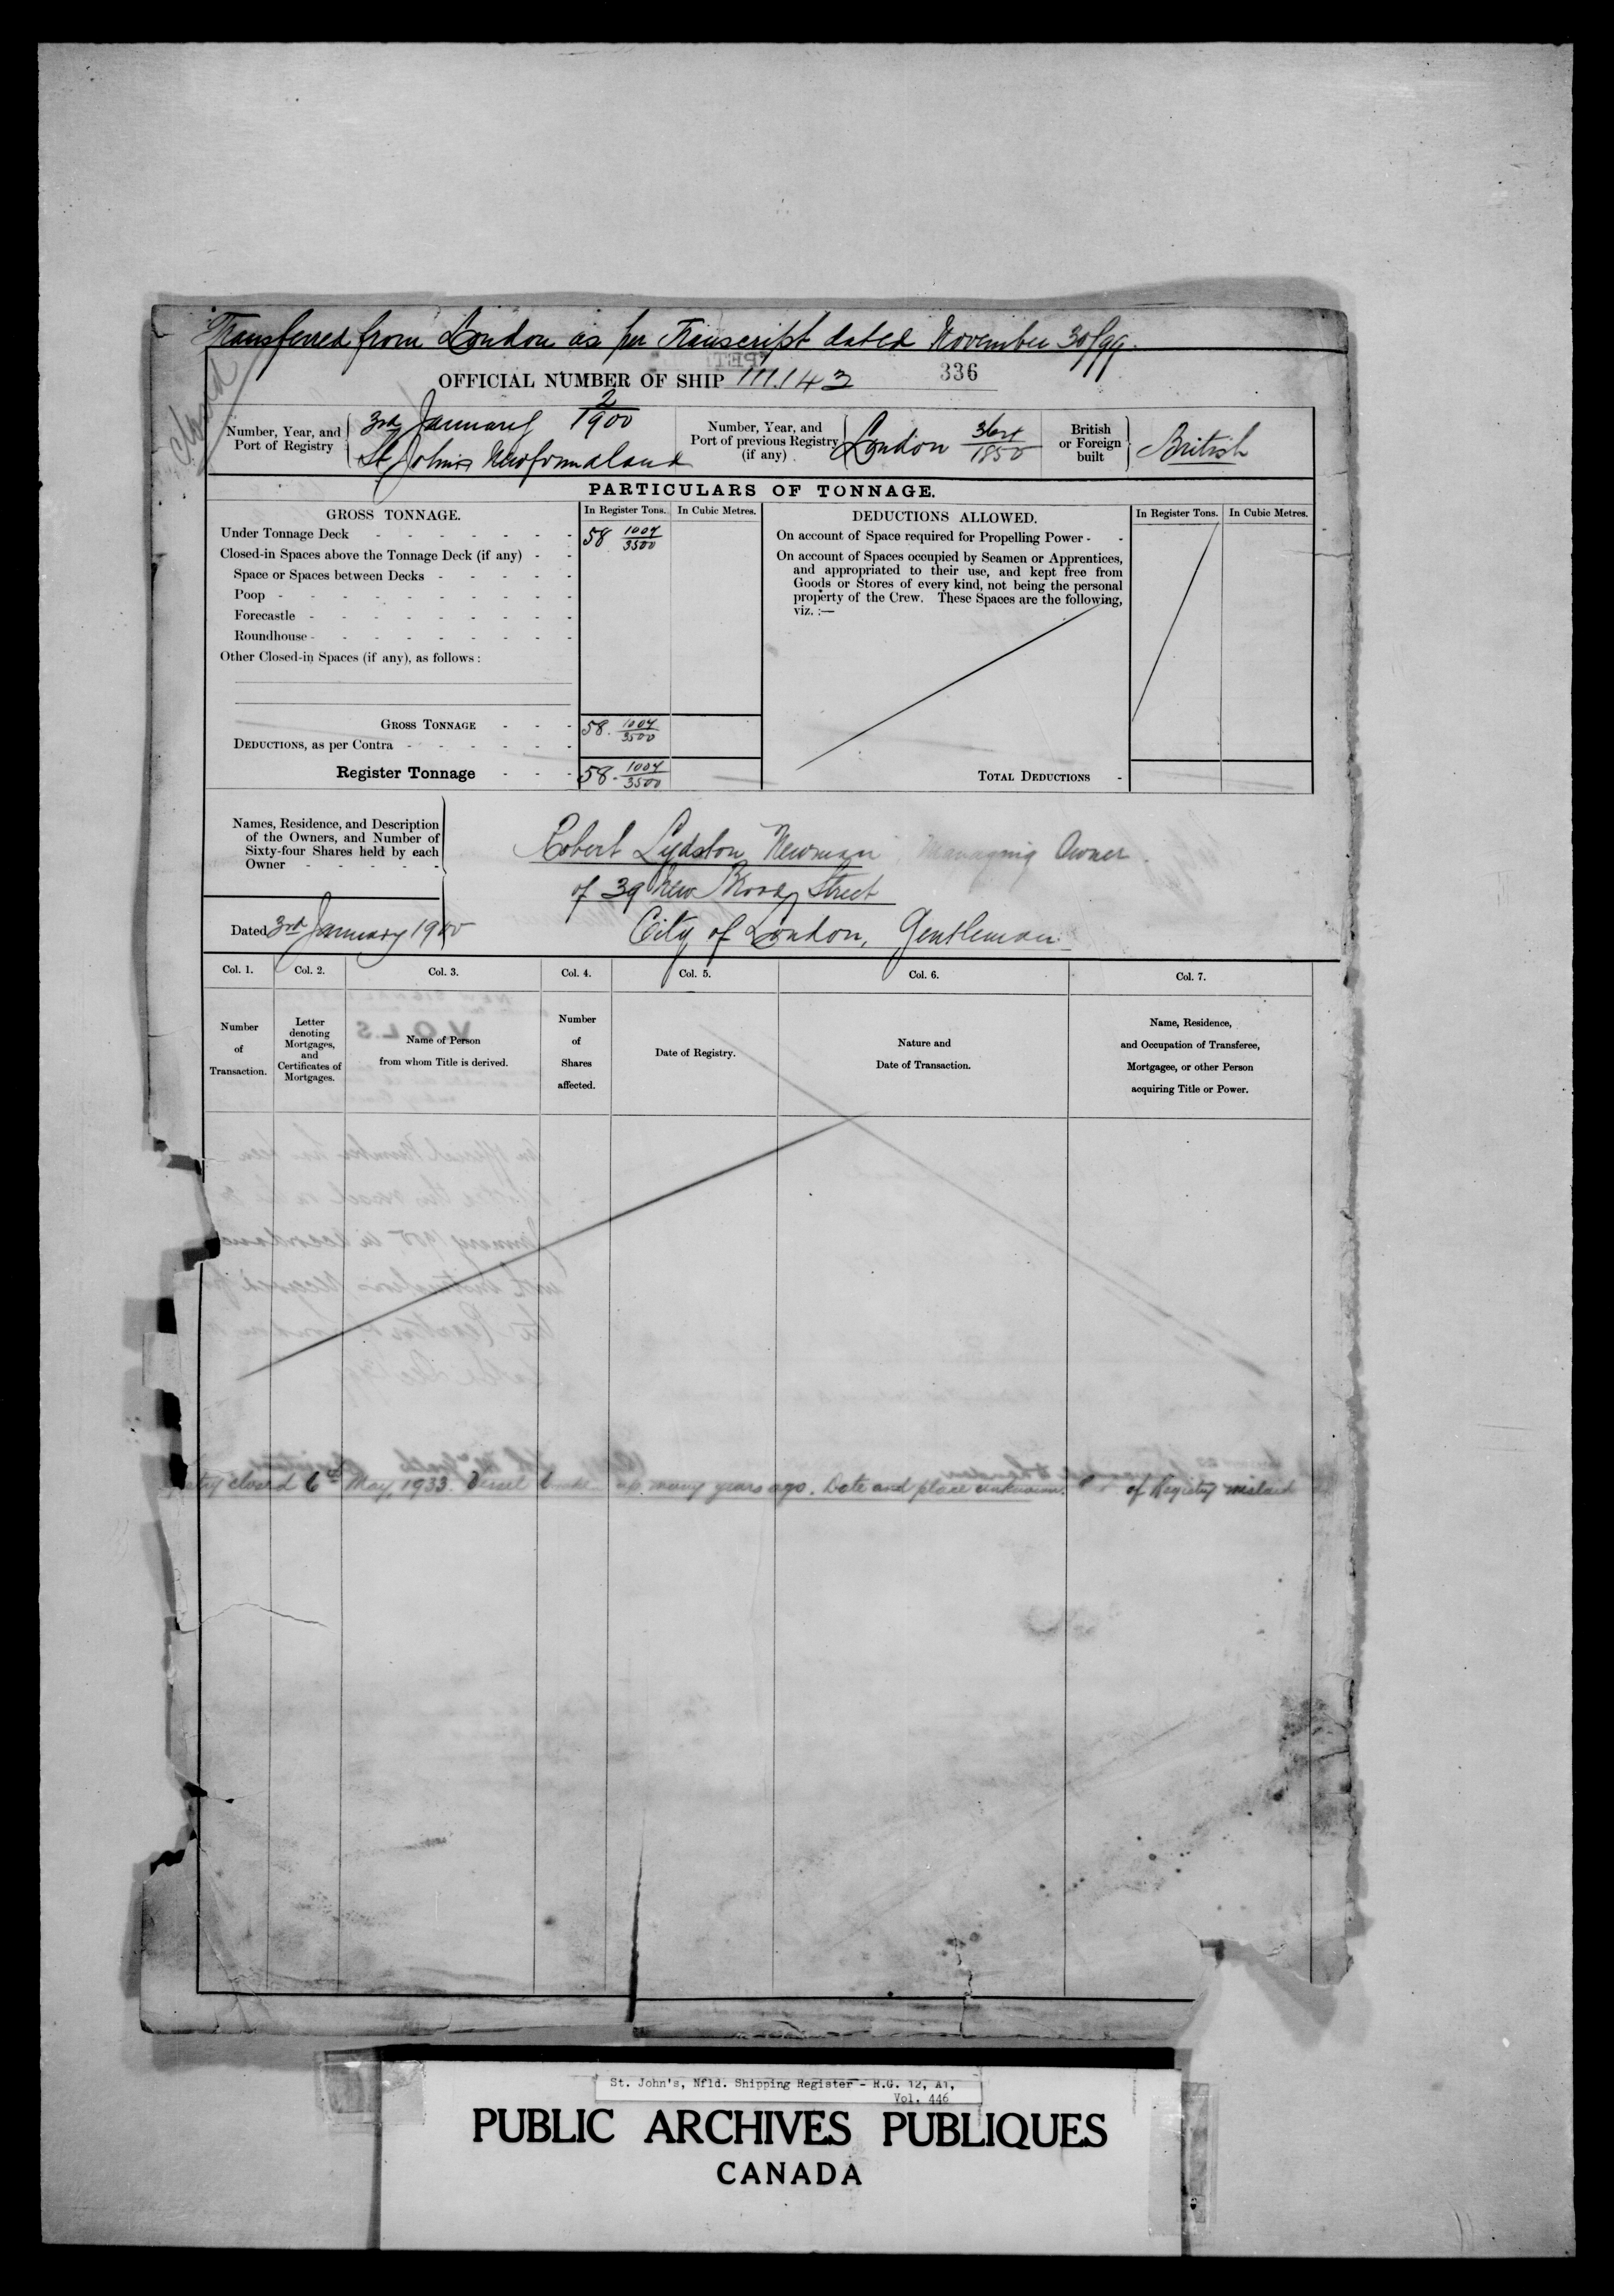 Transferred from London as per Transcript dated November 30/99.
Closed
OFFICIAL NUMBER OF SHIP 111.143 336
Number, Year, and Port of Registry
3rd January 2/1900
St John's Newfoundland
Number, Year, and Port of previous Registry (if any)
London /1850
British or Foreign built
British
PARTICULARS OF TONNAGE.
GROSS TONNAGE. In Register Tons. In Cubic Metres.
Under Tonnage Deck - - - - - - - 58 1004/3500
Closed-in Spaces above the Tonnage Deck (if any) - -
Space or Spaces between Decks - - - - -
Poop - - - - - - - - - -
Forecastle - - - - - - - - -
Roundhouse - - - - - - - - -
Other Closed-in Spaces (if any), as follows :
GROSS TONNAGE - - - 58. 1004/3500
DEDUCTIONS, as per Contra - - - - - -
Register Tonnage - - - 58. 1004/3500
DEDUCTIONS ALLOWED. In Register Tons. In Cubic Metres.
On account of Space required for Propelling Power - -
On account of Spaces occupied by Seamen or Apprentices,
and appropriated to their use, and kept free from
Goods or Stores of every kind, not being the personal
property of the Crew. These Spaces are the following,
viz. :—
TOTAL DEDUCTIONS -
Names, Residence, and Description
of the Owners, and Number of
Sixty-four Shares held by each
Owner - - - - -
Robert Lydston Newman Managing Owner.
of 39 New Broad Street
City of London, Gentleman.
Dated 3rd January 1900
Col. 1. Col. 2. Col. 3. Col. 4. Col. 5. Col. 6. Col. 7.
Number of Transaction.
Letter denoting Mortgages, and Certificates of Mortgages.
Name of Person from whom Title is derived.
Number of Shares affected.
Date of Registry.
Nature and Date of Transaction.
Name, Residence, and Occupation of Transferee, Mortgagee, or other Person acquiring Title or Power.
closed 6th May, 1933. Vessel broken up many years ago. Date and place unknown. of Registry mislaid
St. John's, Nfld. Shipping Register - R.G. 12, A1,
Vol. 446
PUBLIC ARCHIVES PUBLIQUES
CANADA